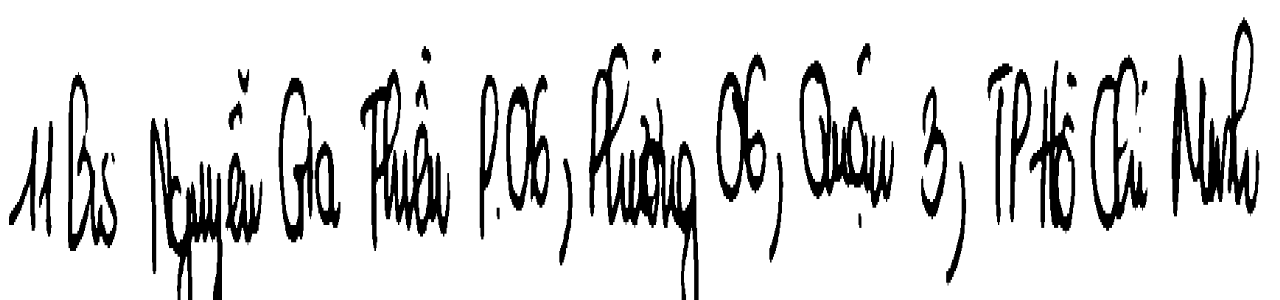 11 Bis Nguyễn Gia Thiều P.06, Phường 06, Quận 3, TP Hồ Chí Minh